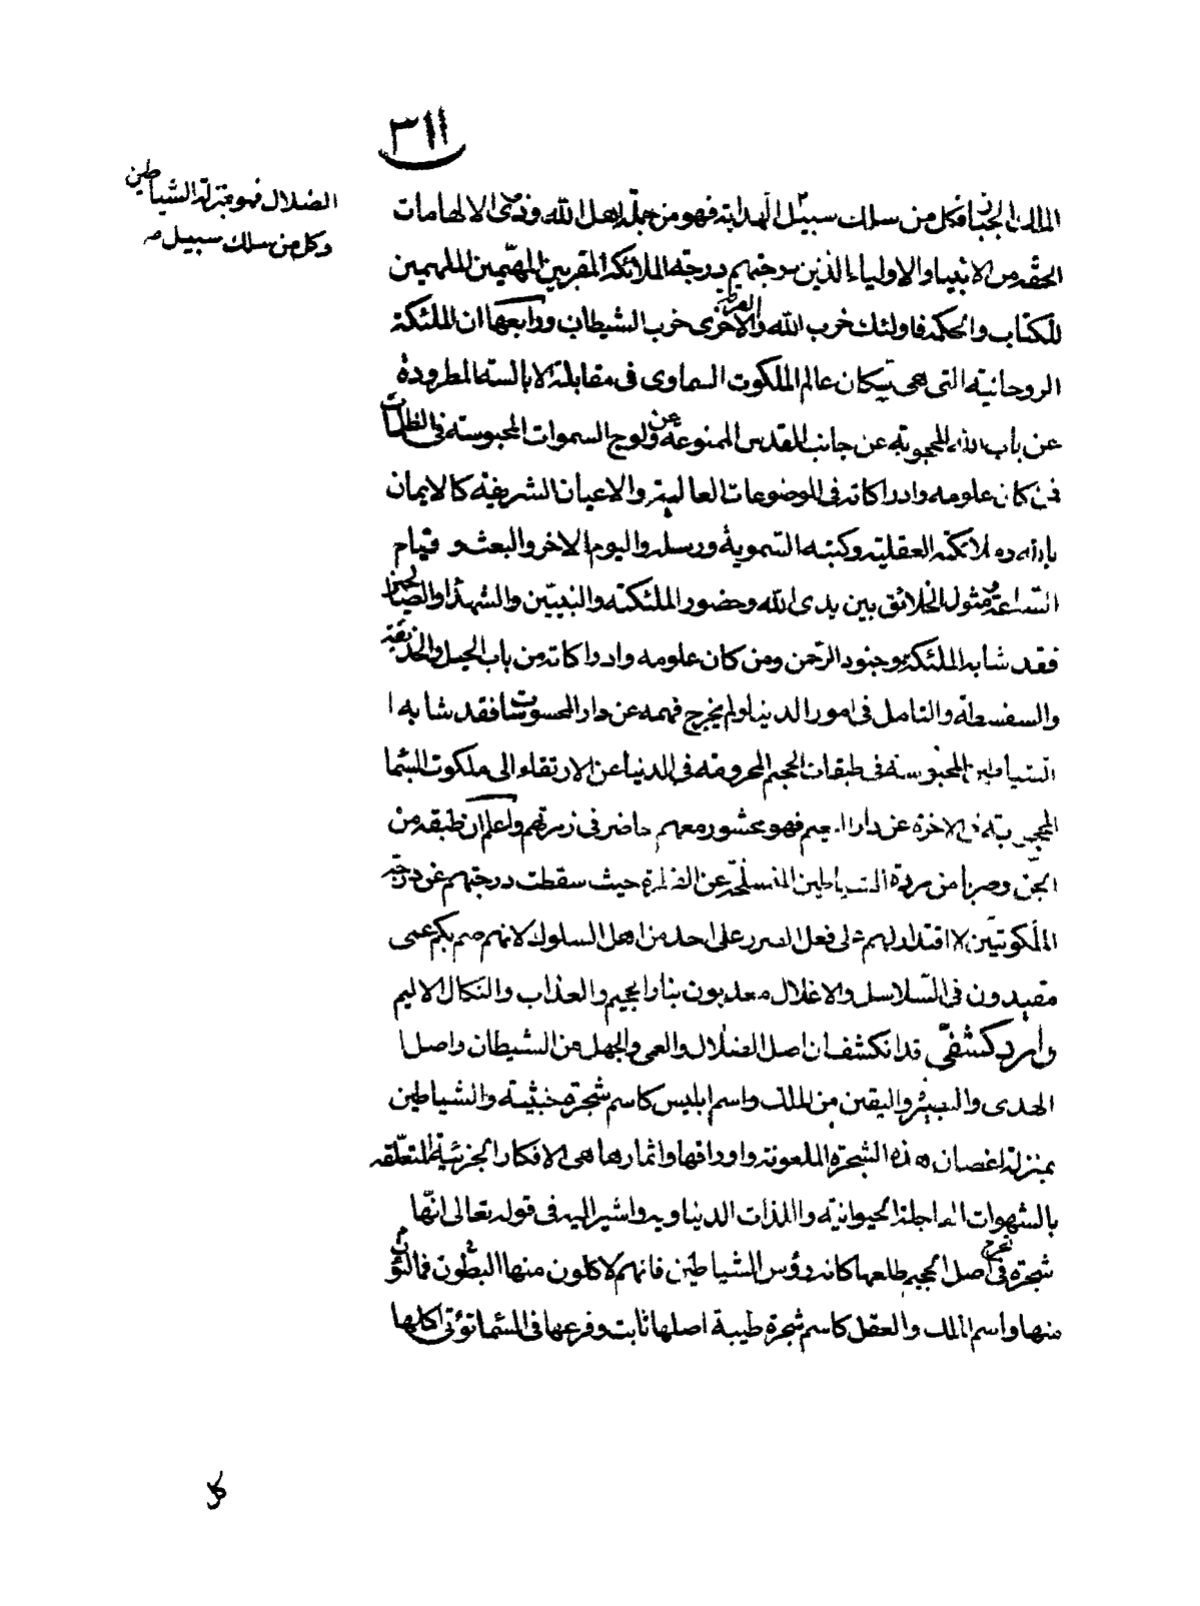 ٣١١
الضلال فهو بمنزلة الشياطين
وكل من سلك سبيل صه
الملك الجنانى فكل من سلك سبيل الهداية فهو من جملة اهل الله وذوى الالهامات
الحقه من الانبياء والاولياء الذين درجتهم درجه الملائكة المقربين المهيمين الملهمين
للكتاب والحكمه فاولئك حزب الله والفرقة الاخرى حزب الشيطان ورابعها ان الملئكة
الروحانية التى هى سكان عالم الملكوت السماوى فى مقابلة الابالسة المطرودة
عن باب الله المحجوبة عن جانب القدس الممنوعة عن ولوج السموات المحبوسة فى الظلمات
فمن كان علومه وادراكاته فى الموضوعات العالية والاعيان الشريفة كالايمان
بالله وملائكته العقلية وكتبه السموية ورسله واليوم الاخر والبعث و قيام
الساعة ومثول الخلائق بين يدى الله وحضور الملئكة والنبيين والشهداء والصالحين
فقد شابه الملئكة وجنود الرحمن ومن كان علومه وادراكاته من باب الحيل والخديعة
والسفسطة والتامل فى امور الدنيا ولم يخرج فهمه عن دار المحسوسات فقد شابه ا
الشياطين المحبوسة فى طبقات الجحيم المحرومة فى الدنيا عن الارتقاء الى ملكوت السما
المحجوبة فى الاخرة عن دار النعيم فهو محشور معهم حاضر فى زمرتهم واعلم ان طبقه من
الجن وضربا من مردة الشياطين المنسلخة عن الفطرة حيث سقطت درجتهم عن درجة
الملكوتيين لا اقتدار لهم على فعل الضرر على احد من اهل السلوك لانهم صم بكم عمى
مقيدون فى السلاسل والاغلال معذبون بنار الجحيم والعذاب والنكال الاليم
وامرد كشفى قد انكشف ان اصل الضلال والعمى والجهل من الشيطان واصل ا
الهدى والبصيرة واليقين من الملك واسم ابليس كاسم شجرة خبيثة والشياطين
بمنزلة اغصان هذه الشجرة الملعونة واوراقها واثمارها هى الافكار الجزئية المتعلقه
بالشهوات العاجلة الحيوانية واللذات الدنياويه واشير اليه فى قوله تعالى انها
شجرة تخرج فى اصل الجحيم طلعها كانه رؤس الشياطين فانهم لاكلون منها البطون فمالئون
منها واسم الملك والعقل كاسم شجرة طيبة اصلها ثابت وفرعها فى السما تؤتى اكلها
كل